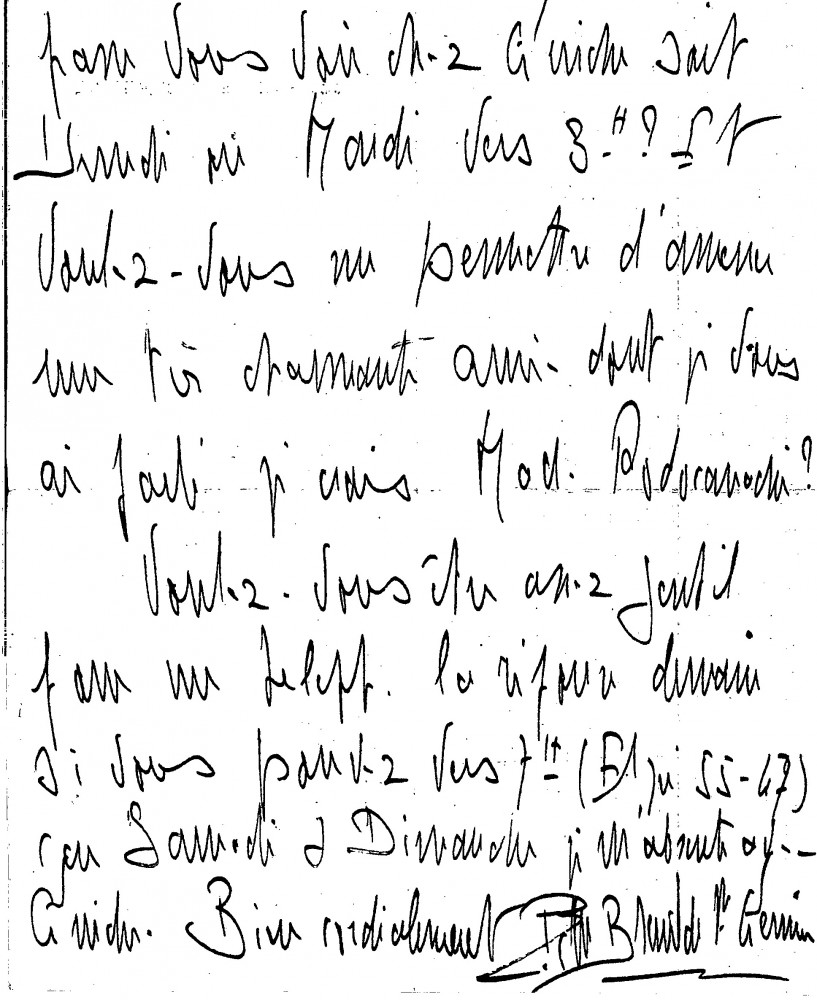 pour vous voir chez Guiche soit
Lundi ou Mardi vers 3.H? Et
Voulez-vous me permettre d'amener
une très charmante amie dont je vous
ai parlé je crois Mad. Rodocanachi?
Voulez-vous être assez gentil
pour me téléph. la réponse demain
si vous pouvez vers 7H (Elysées 55-47)
car Samedi & Dimanche je m'absente
Guiche. Bien cordialement